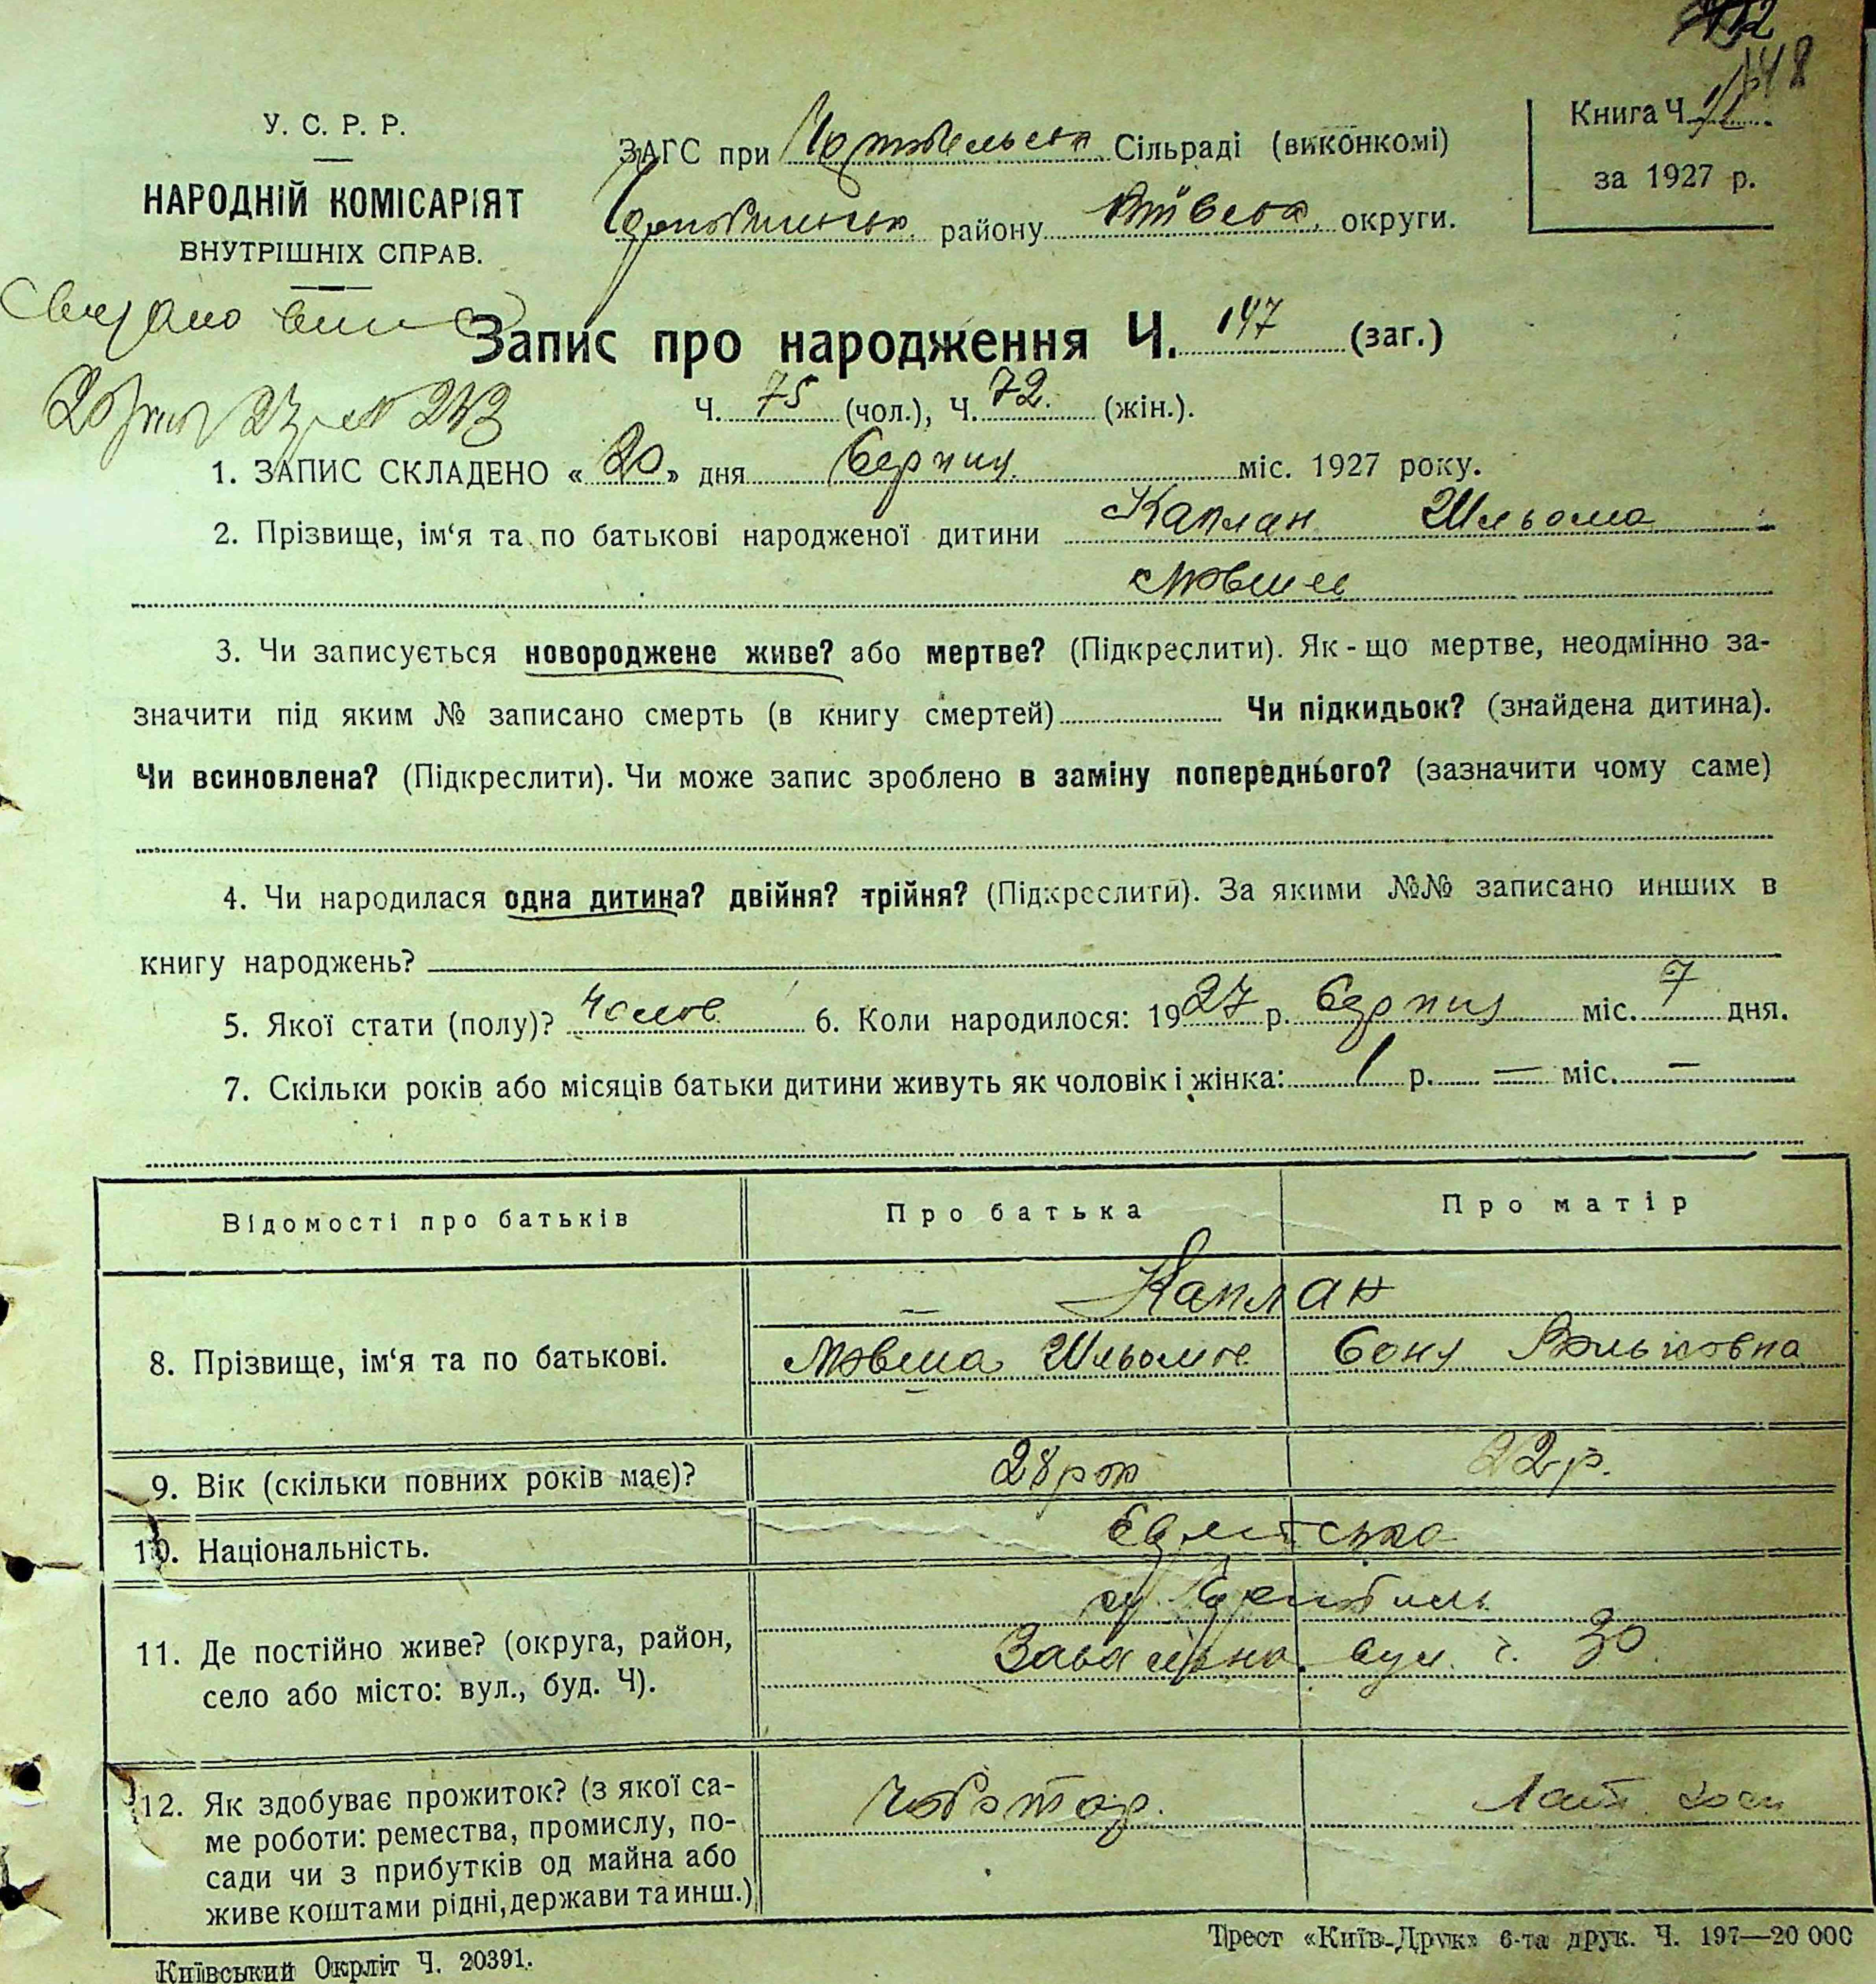 148
У. С. Р. Р.
НАРОДНІЙ КОМІСАРІЯТ
ВНУТРІШНІХ СПРАВ.
ЗАГС при Сільраді (виконкомі)
району Київська округи.
Книга Ч.
за 1927 р.
Запис про народження Ч. 147 (заг.)
Ч. 75 (чол.), Ч. 72. (жін.).
1. ЗАПИС СКЛАДЕНО « 20 » дня Серпня міс. 1927 року.
2. Прізвище, ім‘я та по батькові народженої дитини Каплан Шльома
Мовшев
3. Чи записується новороджене живе? або мертве? (Підкреслити). Як-що мертве, неодмінно за-
значити під яким № записано смерть (в книгу смертей) Чи підкидьок? (знайдена дитина).
Чи всиновлена? (Підкреслити). Чи може запис зроблено в заміну попереднього? (зазначити чому саме)
4. Чи народилася одна дитина? двійня? трійня? (Підкреслити). За якими №№ записано инших в
книгу народжень?
5. Якої стати (полу)? Чолов. 6. Коли народилося: 1927 р. Серпня міс. 7 дня.
7. Скільки років або місяців батьки дитини живуть як чоловік і жінка: 1 р. — міс. —
Відомості про батьків Про батька Про матір
Каплан
8. Прізвище, ім‘я та по батькові. Мовша Шльомов
9. Вік (скільки повних років має)? 28 рок 22 р.
10. Національність.
11. Де постійно живе? (округа, район,
село або місто: вул., буд. Ч). вул. ч. 30
12. Як здобуває прожиток? (з якої са-
ме роботи: ремества, промислу, по-
сади чи з прибутків од майна або
живе коштами рідні, держави та инш.) Чоботар.
Київський Окрліт Ч. 20391.
Трест «Київ-Друк» 6-та друк. Ч. 197—20 000